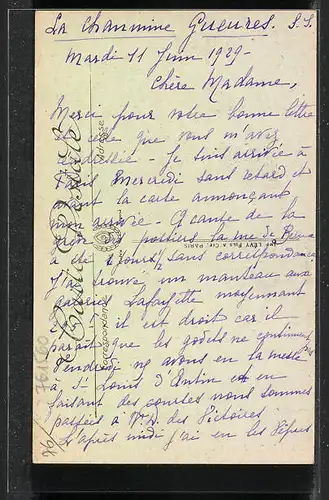 La Charmine Gueures. S. I.
Mardi 11 Juin 1929 -
Chère Madame,
Merci pour votre bonne lettre
et celle que vous m'avez
- Je suis arrivée à
Paris Mercredi sans retard et
avant la carte annonçant
mon arrivée - A cause de la
postiers la rue de
2 jours 1/2 sans correspondance
J'ai trouvé un manteau aux
Lafayette moyennant
il est droit car il
paraît que les godets ne continuent
Vendredi ns avons eu la messe
à St Louis d'Antin et en
faisant des courses nous sommes
passées à N. D. des Victoires
L'après midi j'ai eu les Vêpres
Carte Postale
Correspondance
Adresse
LEVY FILS & Cie, PARIS